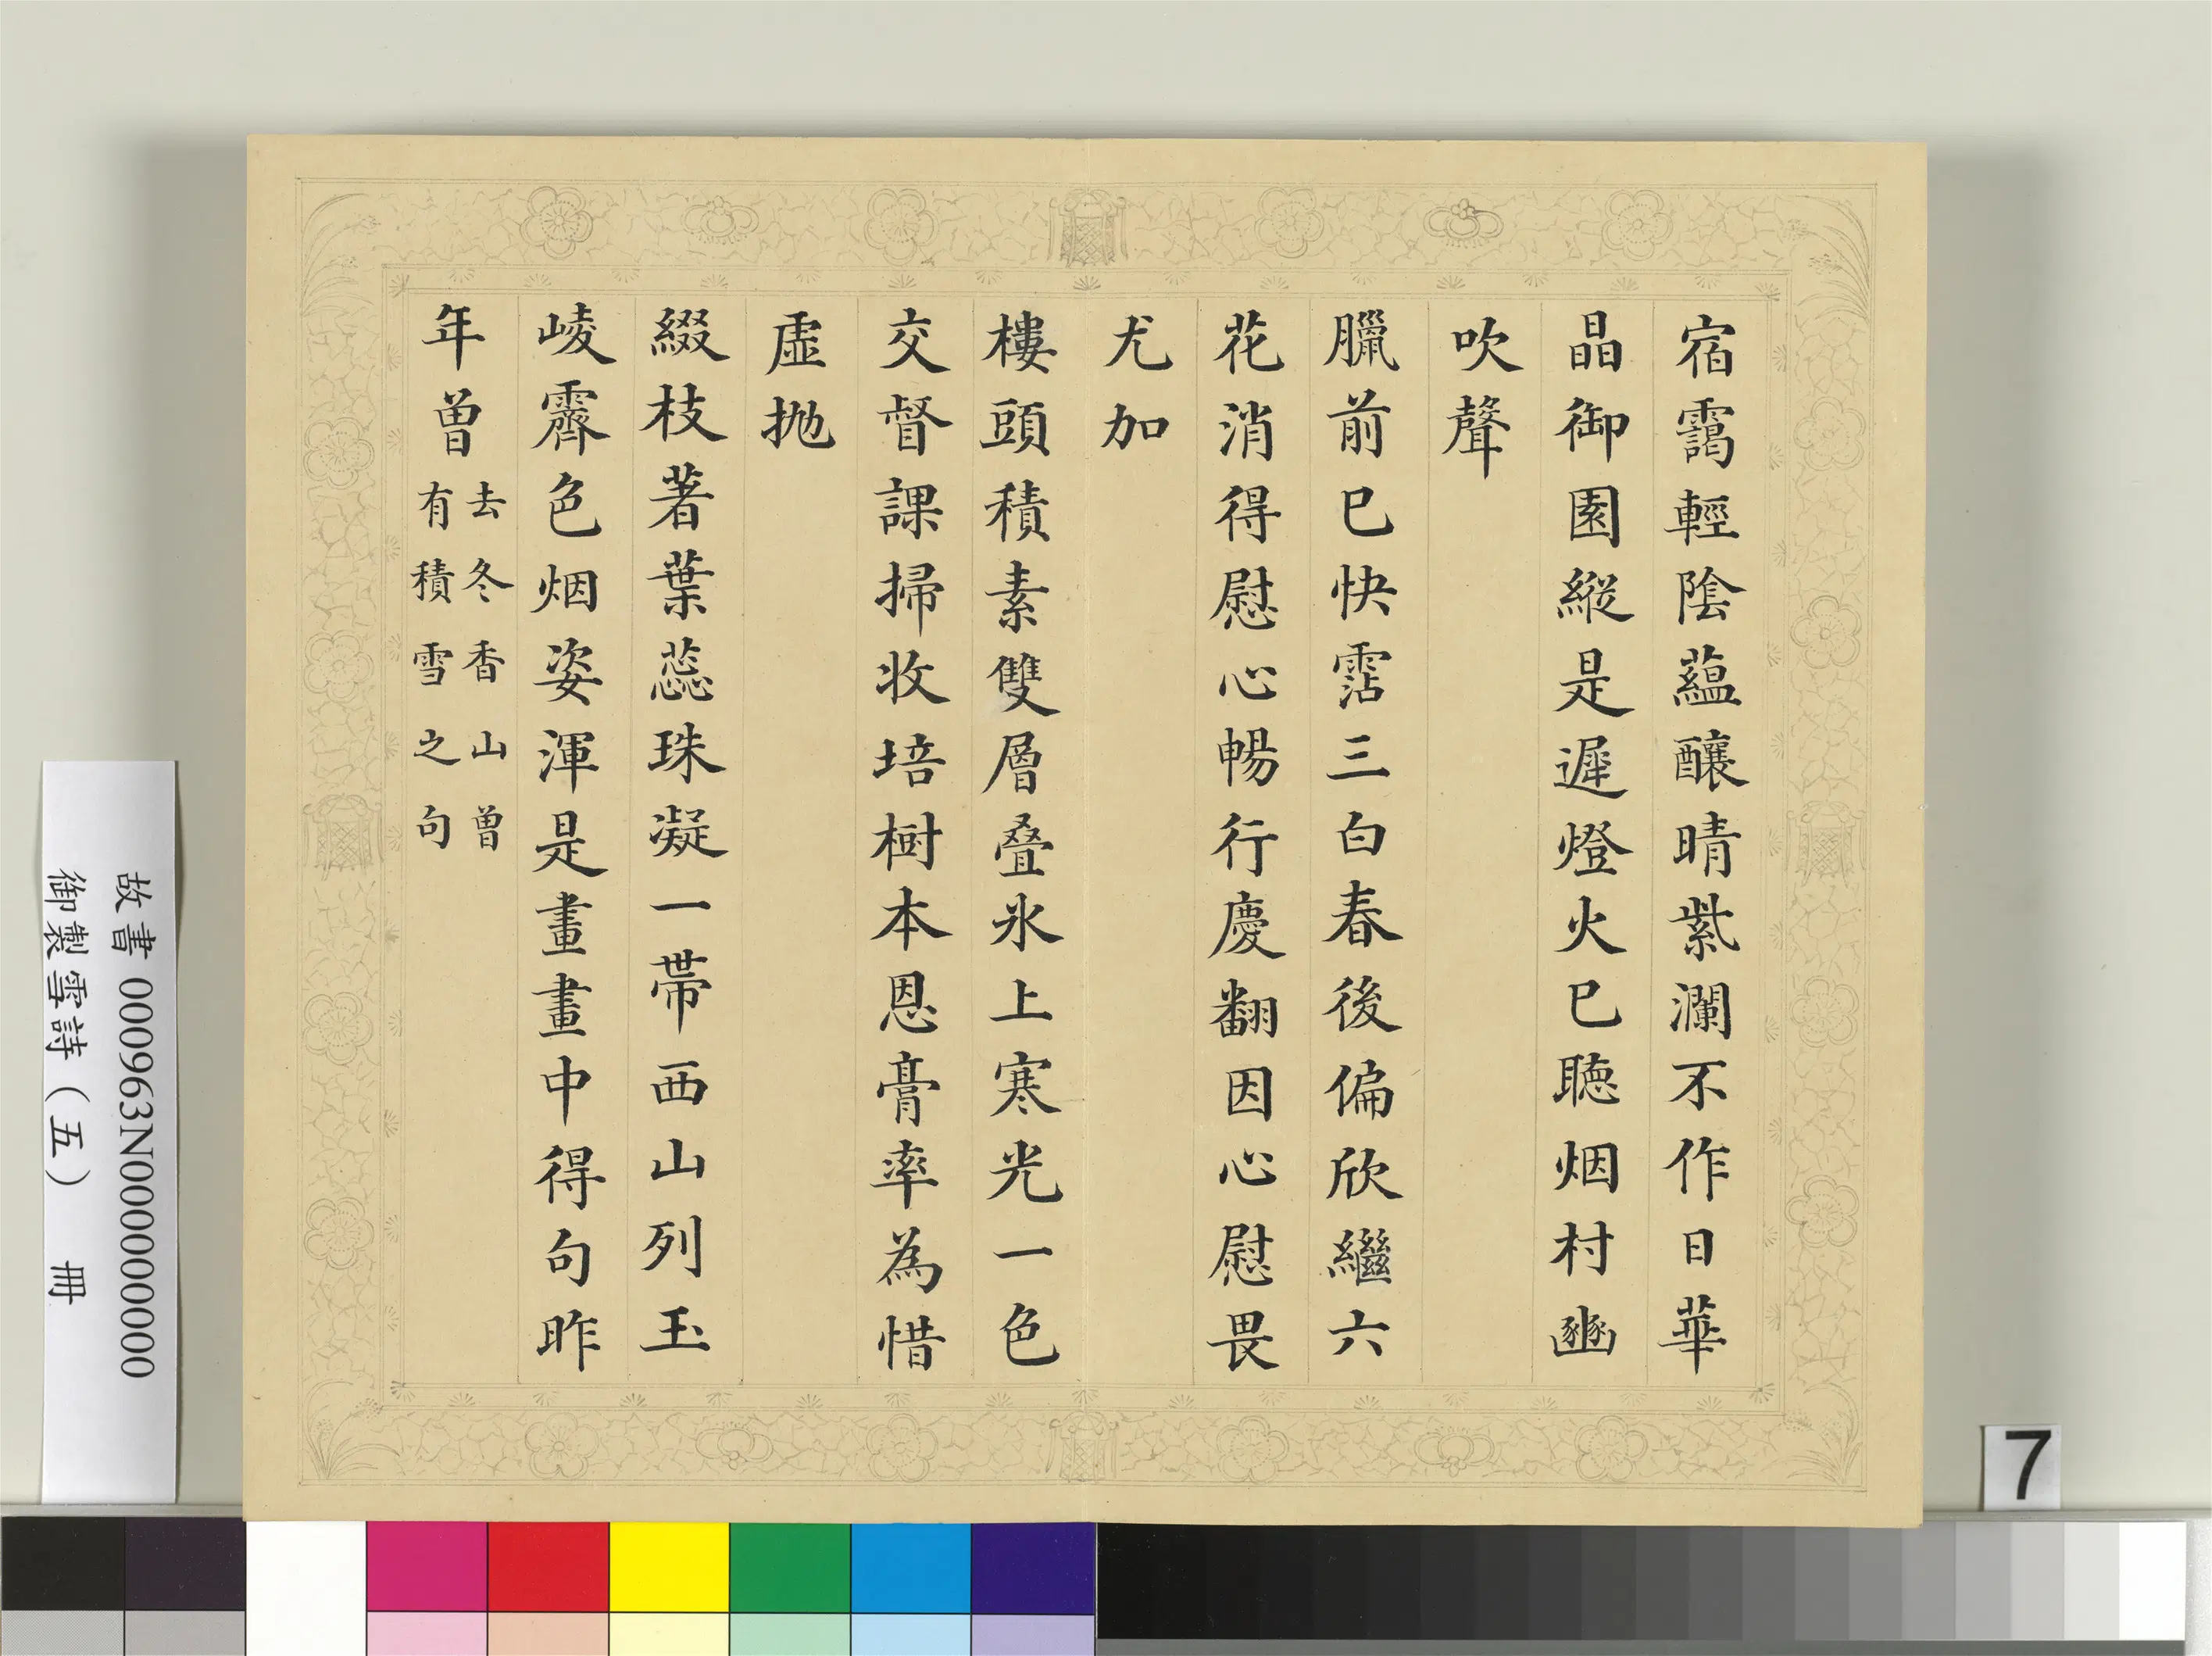 宿靄輕陰蘊釀晴紫瀾不作日華
晶御園縱是遲燈火已聽烟村豳
吹聲
臘前已快霑三白春後偏欣繼六
花消得慰心暢行慶翻因心慰畏
尤加
樓頭積素雙層叠氷上寒光一色
交督課掃收培樹本恩膏率為惜
虛拋
綴枝著葉蕊珠凝一帶西山列玉
崚霽色烟姿渾是畫畫中得句昨
年曾
去冬香山曾
有積雪之句
故書 000963N000000000
御製雪詩（五） 冊
7